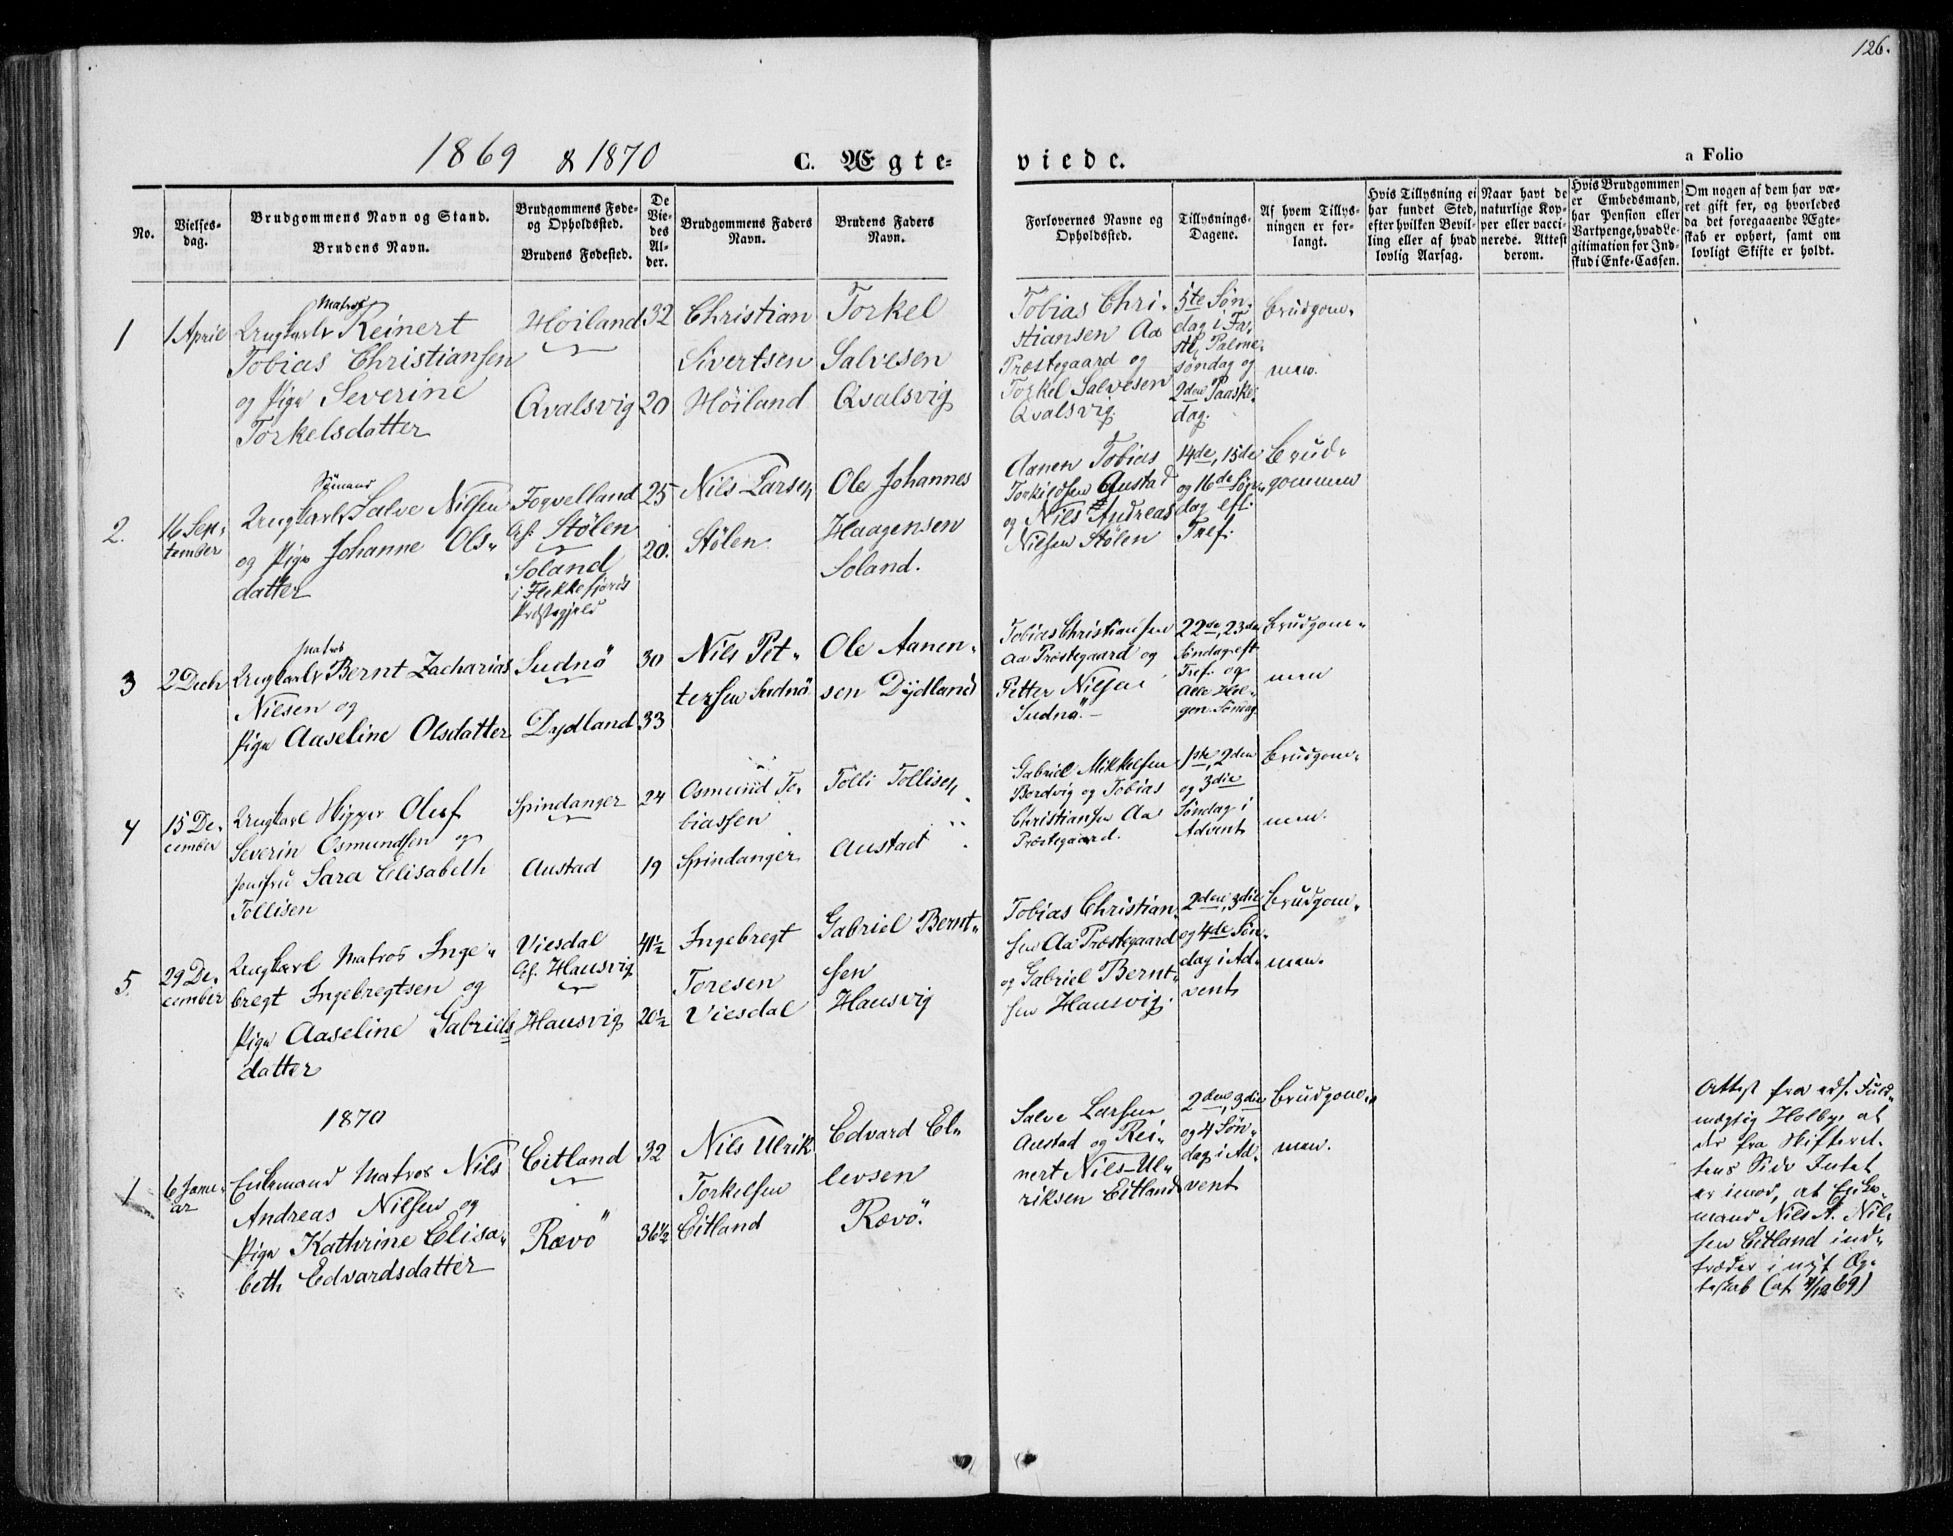 126.
1869 & 1870
C. Ægte-
viede.
a Folio
No.
Vielses-
dag.
Brudgommens Navn og Stand.
Brudens Navn.
Brudgommens Føde-
og Opholdssted.
Brudens Fødested.
De
Vie-
des
Al-
der.
Brudgommens Faders
Navn.
Brudens Faders
Navn.
Forlovernes Navne og
Opholdssted.
Tillysnings-
Dagene.
Af hvem Tillys-
ningen er for-
langt.
Hvis Tillysning ei
har fundet Sted,
efter hvilken Bevil-
ling eller af hvad
lovlig Aarsag.
Naar havt de
naturlige Kop-
per eller vacci-
nerede. Attest
derom.
Hvis Brudgommen
er Embedsmand,
har Pension eller
Vartpenge, hvad Le-
gitimation for Ind-
skud i Enke-Cassen.
Om nogen af dem har væ-
ret gift før, og hvorledes
da det foregaaende Ægte-
skab er ophørt, samt om
lovligt Skifte er holdt.
1
1 April
Matros
Ungkarl Reinert
Tobias Christiansen
og Pige Severine
Torkelsdatter
Høiland
Qvalsvig
32
20
Christian
Sivertsen
Høiland
Torkel
Salvesen
Qvalsvig
Tobias Chri-
stiansen Aa
Præstegaard og
Torkel Salvesen
Qvalsvig
5te Søn-
dag i Fa-
ste, Palme-
søndag og
2den Paaske-
dag.
Brudgom-
men.
2.
16 Sep-
tember
Sømand
Ungkarl Salve Nilsen
og Pige Johanne Ols-
datter
Fogvelland
Stølen
Soland
i Flekkefjords
Præstegjeld
25
20.
Nils Larsen
Stølen
Ole Johannes
Haagensen
Soland.
Aanen Tobias
Torkildsen Austad
og Nils Andreas
Nilsen Stølen
14de, 15de
og 16de Søn-
dag eft:
Tref:
Brud-
gommen
3
2 Decbr
Matros
Ungkarl Bernt Zacharias
Nilsen og
Pige Aaseline Olsdatter
Sudnø
Dydland
30
33
Nils Pet-
tersen Sudnø
Ole Aanen-
sen Dydland
Tobias Christiansen
Aa Præstegaard og
Petter Nilsen
Sudnø.
22de, 23de
Søndag eft
Tref: og
Alle Hel-
gen Søndag
Brudgom-
men
4
15 De-
cember
Ungkarl Skipper Oluf
Severin Osmundsen og
Jomfru Sara Elisabeth
Tollisen
Spindanger
Austad
24
19
Osmund To-
biassen
Spindanger
Tolli Tollisen
Austad
Gabriel Mikkelsen
Bordvig og Tobias
Christiansen Aa
Præstegaard.
1ste, 2den
og 3die
Søndag i
Advent
Brudgom-
men.
5.
29 De-
cember
Ungkarl Matros Inge-
bregt Ingebregtsen og
Pige Aaseline Gabriels
datter
Viesdal
Hausvig
Hausvig
41½
20½
Ingebregt
Toresen
Viesdal
Gabriel Bernt-
sen
Hausvig
Tobias Christian-
sen Aa Præstegaard
og Gabriel Bernt-
sen Hausvig.
2den, 3die
og 4de Søn-
dag i Ad-
vent
Brudgom-
men.
1870
1
6 Janu-
ar
Enkemand Matros Nils
Andreas Nilsen og
Pige Kathrine Elisa-
beth Edvardsdatter
Eitland
Rævø
32
36½
Nils Ulrik
Torkelsen
Eitland
Edvard El-
levsen
Rævø.
Salve Larsen
Austad og Rei-
nert Nils-Ul-
riksen Eitland
2den, 3die
og 4 Søn-
dag i Ad-
vent
Brudgom-
men.
Attest fra Fuld-
mægtig Holby, at
der fra Skifteret-
tens Side Intet
er imod, at Enke-
mand Nils A. Nil-
sen Eitland ind-
træder i nyt Æg-
teskab (af /12 69)